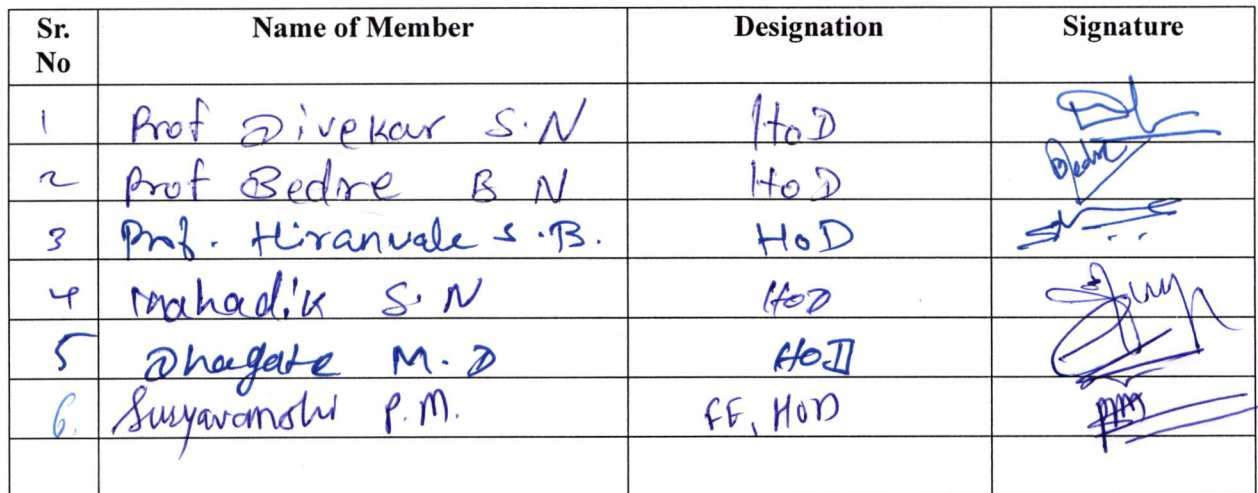 Sr. No Name of Member Designation Signature
1 Prof Divekar S.N HoD
2 Prof Bedre B N HoD Bedre
3 Prof. Hiranvale S.B. HoD
4 Mahadik S.N HoD
5 Dhagate M.D HoD
6. Suryavanshi P.M. FE, HoD